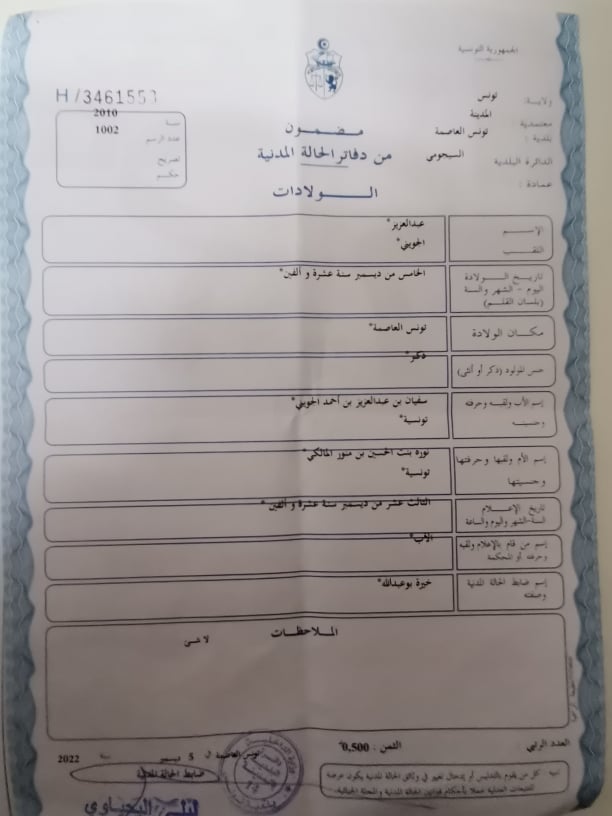 الجمهورية التونسية
H/3461553
ولاية: تونس
معتمدية: المدينة
بلدية: تونس العاصمة
الدائرة البلدية السيجومي
عمادة:
سنة 2010
عدد الرسم 1002
تصريح
حكم
مضمون
من دفاتر الحالة المدنية
الولادات
الإسم عبدالعزيز*
اللقب الجويني*
تاريخ الولادة
اليوم - الشهر والسنة
(بلسان القلم)
الخامس من ديسمبر سنة عشرة و ألفين*
مكان الولادة تونس العاصمة*
جنس المولود (ذكر أو أنثى) ذكر*
إسم الأب ولقبه وحرفته سفيان بن عبدالعزيز بن أحمد الجويني*
وجنسيته تونسية*
إسم الأم ولقبها وحرفتها نورة بنت الحسين بن منور المالكي*
وجنسيتها تونسية*
تاريخ الإعلام
السنة-الشهر واليوم والساعة
الثالث عشر من ديسمبر سنة عشرة و ألفين*
إسم من قام بالإعلام ولقبه
وحرفته أو المحكمة
الأب*
إسم ضابط الحالة المدنية
وصفته
خيرة بوعبدالله*
الملاحظات
لا شئ
العدد الرتبي: الثمن: 0,500
تونس العاصمة في 5 ديسمبر سنة 2022
ضابط الحالة المدنية
تنبيه كل من يقوم بالتدليس أو بإدخال تغيير في وثائق الحالة المدنية يكون عرضة
للتتبعات العدلية عملا بأحكام قوانين الحالة المدنية والمجلة الجنائية.